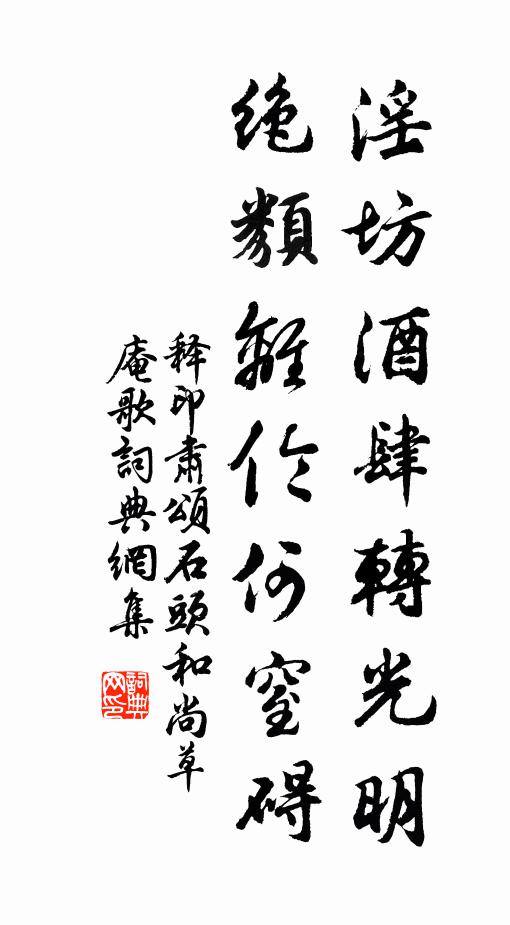 淫坊酒肆轉光明
絶類離伦何窒碍
释印肅頌石頭和尚草
庵歌詞典網集
詞典
网印